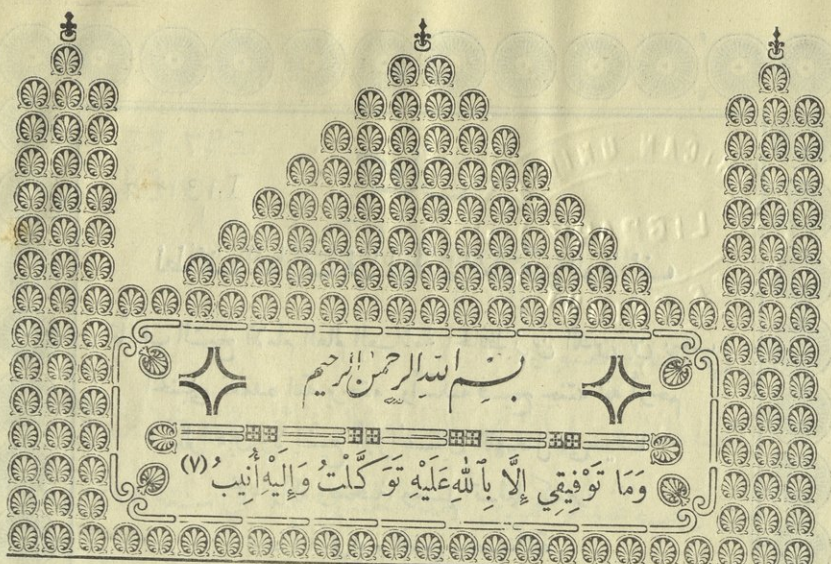 بسم الله الرحمن الرحيم
وَمَا تَوْفِيقِي إِلَّا بِٱللهِ عَلَيْهِ تَوَكَّلْتُ وَإِلَيْهِ أُنِيبُ (٧)